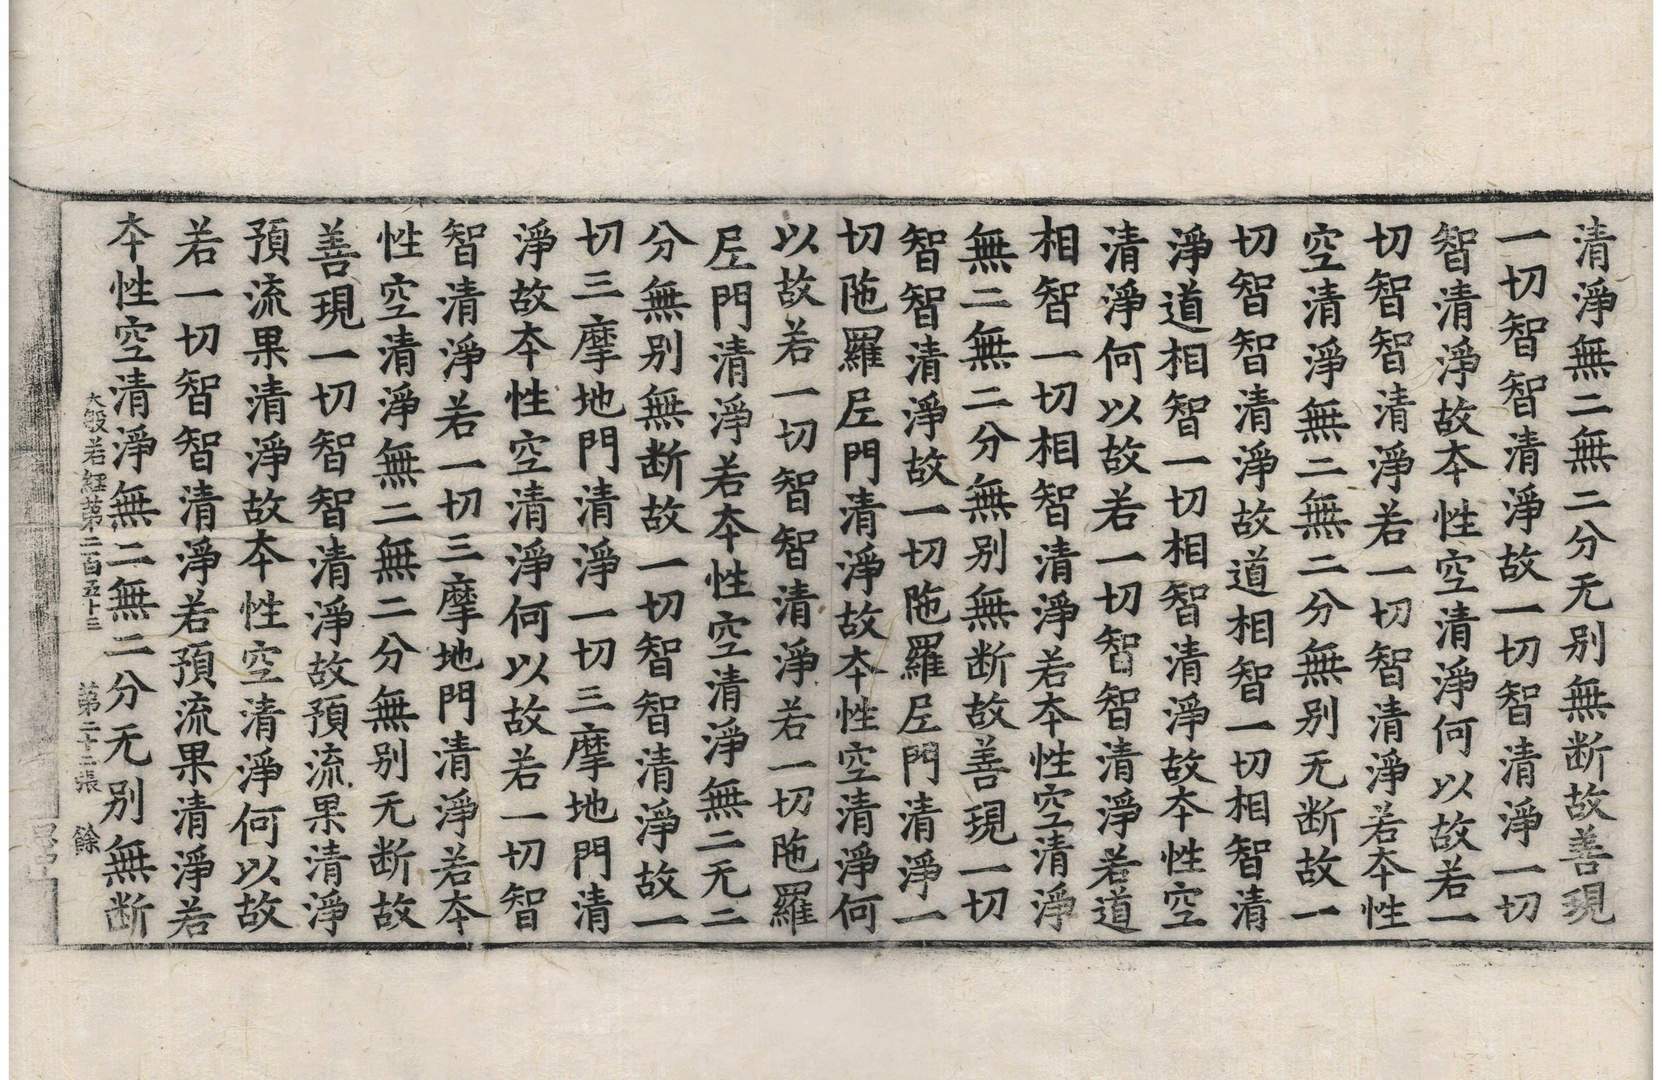 清淨無二無二分无别無断故善現
一切智智清淨故一切智清淨一切
智清淨故本性空清淨何以故若一
切智智清淨若一切智清淨若本性
空清淨無二無二分無别无断故一
切智智清淨故道相智一切相智清
淨道相智一切相智清淨故本性空
清淨何以故若一切智智清淨若道
相智一切相智清淨若本性空清淨
無二無二分無别無断故善現一切
智智清淨故一切陁羅尼門清淨一
切陁羅尼門清淨故本性空清淨何
以故若一切智智清淨若一切陁羅
尼門清淨若本性空清淨無二无二
分無别無断故一切智智清淨故一
切三摩地門清淨一切三摩地門清
淨故本性空清淨何以故若一切智
智清淨若一切三摩地門清淨若本
性空清淨無二無二分無别无断故
善現一切智智清淨故預流果清淨
預流果清淨故本性空清淨何以故
若一切智智清淨若預流果清淨若
本性空清淨無二無二分无别無断
大般若經第二百五十三 第二十二張 餘